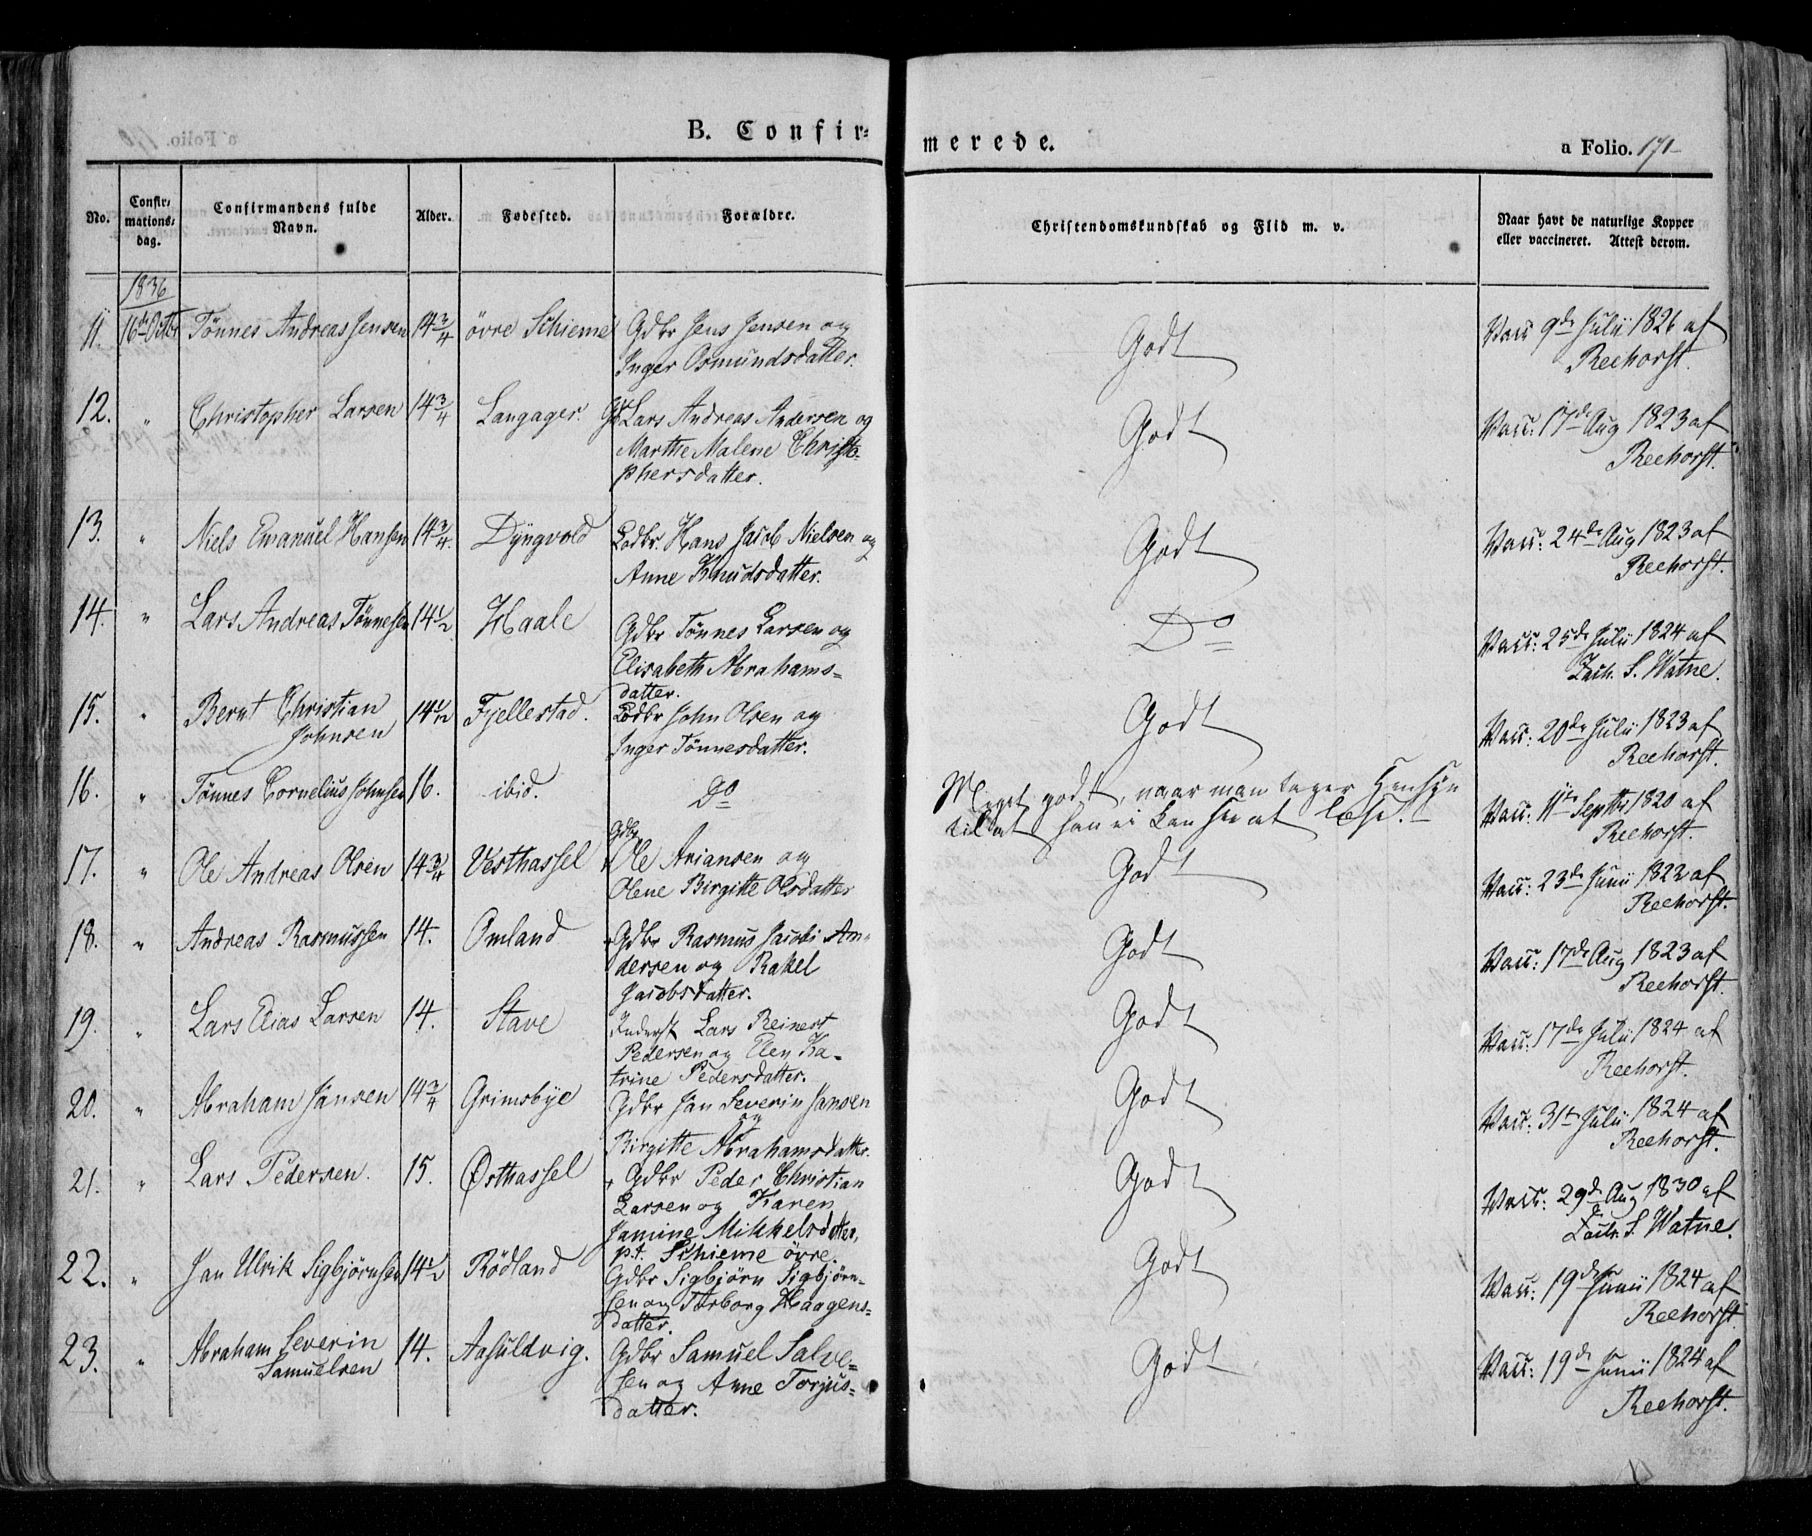 B. Confir=
merede.
a Folio. 171
No.
Confir=
mations=
dag.
Confirmandens fulde
Navn.
Alder.
Fødested.
Forældre.
Christendomskundskab og Flid m. v.
Naar havt de naturlige Kopper
eller vaccineret. Attest derom.
1836
11. 16de Octbr Tønnes Andreas Jensen 14 3/4 øvre Schieme Gdbr Jens Jensen og
Inger Osmundsdatter.
Godt
Vacc 9de Julii 1826 af
Reehorst.
12. " Christopher Larsen 14 3/4 Langager. Gdbr Lars Andreas Andersen og
Marthe Malene Christo-
phersdatter.
Godt
Vacc: 17de Aug 1823 af
Reehorst.
13. " Niels Emanuel Hansen 14 3/4. Dyngvold Lodbr. Hans Jacob Nielsen og
Anne Knudsdatter.
Godt
Vacc: 24de Aug 1823 af
Reehorst.
14. " Lars Andreas Tønnesen 14 1/2 Haale Gdbr Tønnes Larsen og
Elisabeth Abrahams-
datter.
Do
Vacc: 25de Julii 1824 af
Zach. S. Watne.
15. " Bernt Christian
Johnsen
14 1/2 Fjellestad. Lodbr John Olsen og
Inger Tønnesdatter.
Godt
Vacc: 20de Julii 1823 af
Reehorst.
16. " Tønnes Cornelius Johnsen 16. ibid. Do
Meget godt, naar man tager Hensyn
til at han ei kan see at læse.
Vacc: 11te Septbr 1820 af
Reehorst.
17. " Ole Andreas Olsen 14 3/4 Vesthassel Gdbr
Ole Ariansen og
Olene Birgitte Olsdatter
Godt
Vacc: 23de Junii 1822 af
Reehorst.
18. " Andreas Rasmussen 14. Omland Gdbr Rasmus Jacobi An-
dersen og Rakel
Jacobsdatter.
Godt
Vacc: 17de Aug 1823 af
Reehorst.
19. " Lars Elias Larsen 14. Stave Inderst Lars Reinert
Pedersen og Elen Ka-
trine Pedersdatter.
Godt
Vacc: 17de Julii 1824 af
Reehorst.
20. " Abraham Jansen 14 3/4 Grimsbye Gdbr Jan Severin Jansen
og
Birgitte Abrahamsdatter.
Godt
Vacc: 31te Julii 1824 af
Reehorst.
21. " Lars Pedersen. 15. Østhassel Gdbr Peder Christian
Larsen og Karen
Jamine Mikkelsdatter,
p.t. Schieme øvre.
Godt
Vacc: 29de Aug 1830 af
Zach. S. Watne.
22. " Jan Ulrik Sigbjørnsen 14 1/2 Rødland Gdbr Sigbjørn Sigbjørn-
sen og Torborg Haagens-
datter.
Godt
Vacc: 19de Junii 1824 af
Reehorst
23. " Abraham Severin
Samuelsen
14. Aasuldvig. Gdbr Samuel Salve-
sen og Anne Torjus-
datter.
Godt
Vacc: 19de Junii 1824 af
Reehorst.